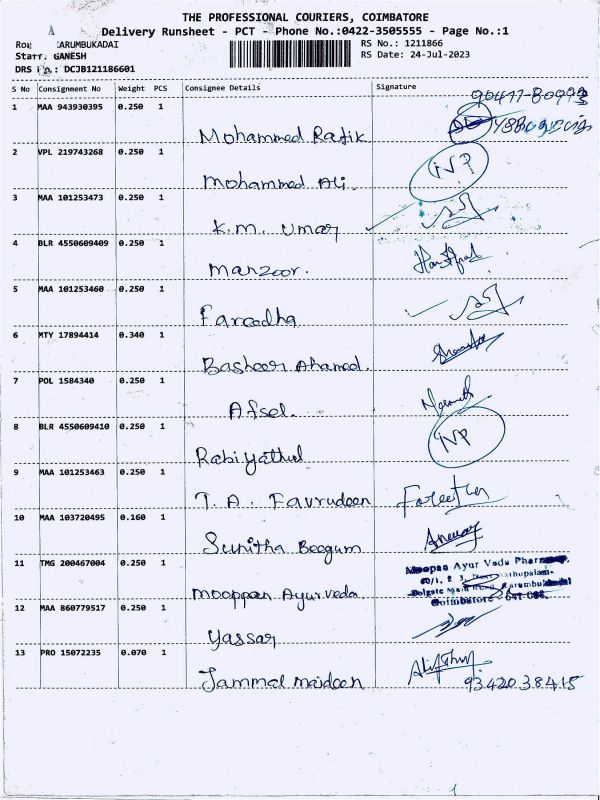 THE PROFESSIONAL COURIERS, COIMBATORE
Delivery Runsheet - PCT - Phone No.:0422-3505555 - Page No.:1
KARUMBUKADAI
RS No.: 1211866
Staff: GANESH
RS Date: 24-Jul-2023
DRS No.: DCJB121186601
S No Consignment No Weight PCS Consignee Details Signature
1 MAA 943930395 0.250 1
Mohammed Rafik
2 VPL 219743268 0.250 1
Mohammed Ali. NP
3 MAA 101253473 0.250 1
K.M. Umar
4 BLR 4550609409 0.250 1
Manzoor.
5 MAA 101253460 0.250 1
Fareedha
6 MTY 17894414 0.340 1
Basheer Ahamed.
7 POL 1584340 0.250 1
Afsel.
8 BLR 4550609410 0.250 1
Rabiyathul NP
9 MAA 101253463 0.250 1
T.A. Favrudeen
10 MAA 103720495 0.160 1
Sunitha Beegum
11 TMG 200467004 0.250 1
Mooppan Ayurveda
Moopan Ayur Veda Pharmacy.
Coimbatore
12 MAA 860779517 0.250 1
Yassar
13 PRO 15072235 0.070 1
Jammal maideen 9342038415